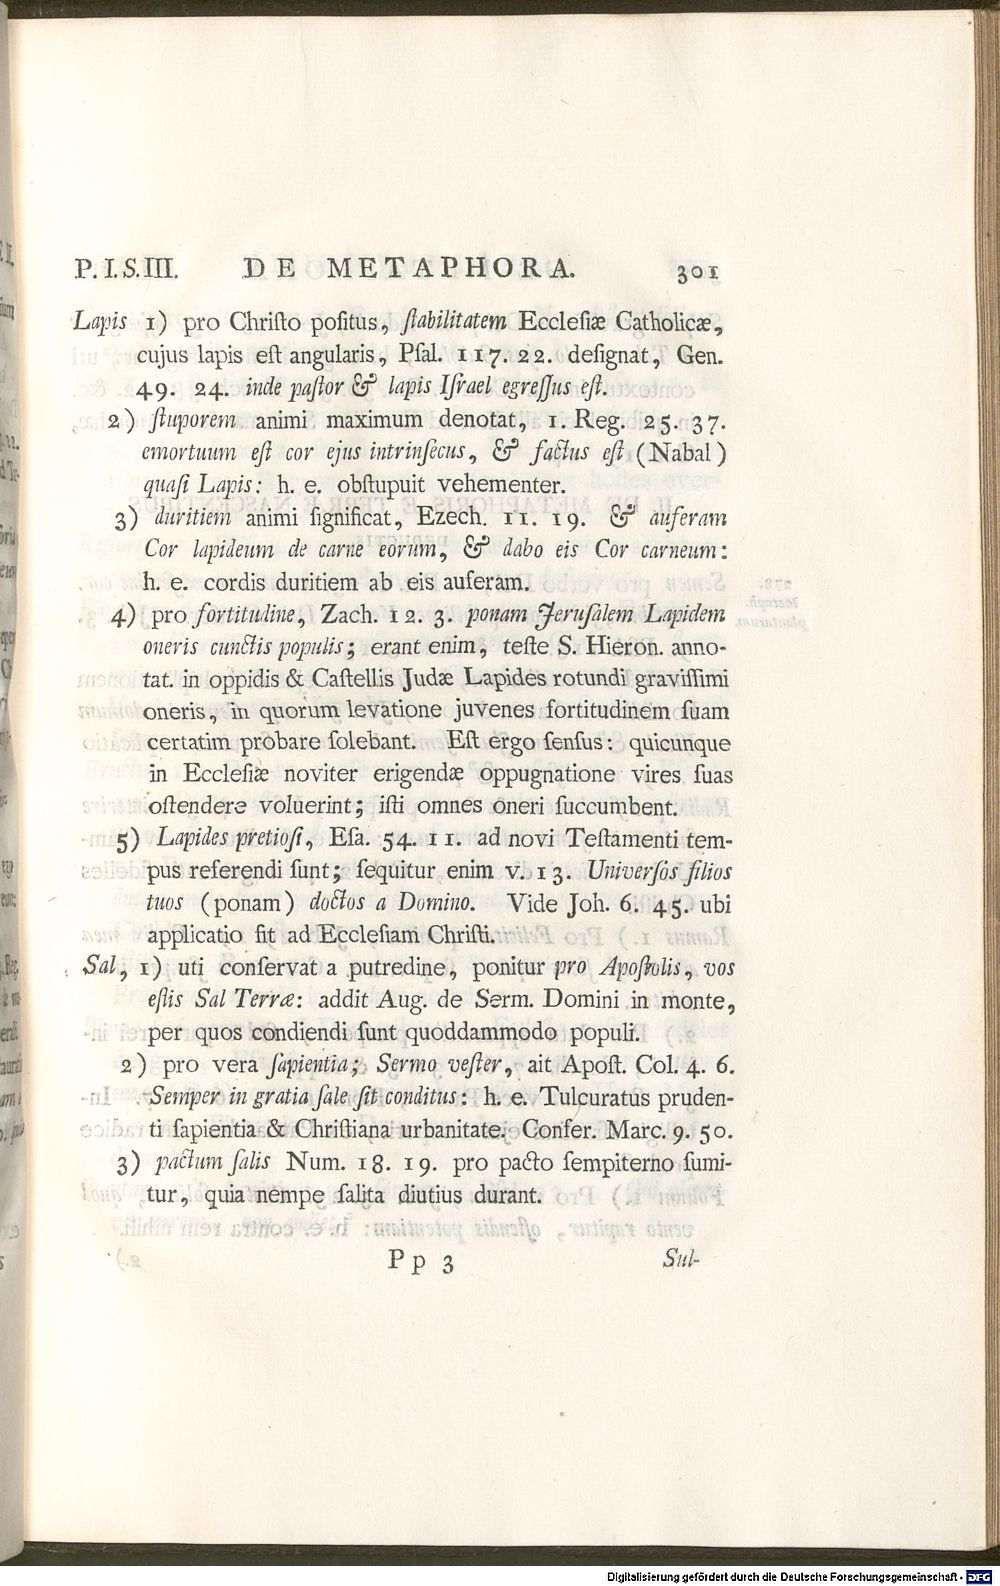 P. I. S. III. DE METAPHORA. 301
Lapis 1) pro Chriſto poſitus, ſtabilitatem Eccleſiæ Catholicæ,
cujus lapis eſt angularis, Pſal. 117. 22. deſignat, Gen.
49. 24. inde paſtor & lapis Iſrael egreſſus eſt.
2) ſtuporem animi maximum denotat, 1. Reg. 25. 37.
emortuum eſt cor ejus intrinſecus, & factus eſt (Nabal)
quaſi Lapis: h. e. obſtupuit vehementer.
3) duritiem animi ſignificat, Ezech. 11. 19. & auferam
Cor lapideum de carne eorum, & dabo eis Cor carneum:
h. e. cordis duritiem ab eis auferam.
4) pro fortitudine, Zach. 12. 3. ponam Jeruſalem Lapidem
oneris cunctis populis; erant enim, teſte S. Hieron. anno-
tat. in oppidis & Caſtellis Judæ Lapides rotundi graviſſimi
oneris, in quorum levatione juvenes fortitudinem ſuam
certatim probare ſolebant. Eſt ergo ſenſus: quicunque
in Eccleſiæ noviter erigendæ oppugnatione vires ſuas
oſtendere voluerint; iſti omnes oneri ſuccumbent.
5) Lapides pretioſi, Eſa. 54. 11. ad novi Teſtamenti tem-
pus referendi ſunt; ſequitur enim v. 13. Univerſos filios
tuos (ponam) doctos a Domino. Vide Joh. 6. 45. ubi
applicatio fit ad Eccleſiam Chriſti.
Sal, 1) uti conſervat a putredine, ponitur pro Apoſtolis, vos
eſtis Sal Terræ: addit Aug. de Serm. Domini in monte,
per quos condiendi ſunt quoddammodo populi.
2) pro vera ſapientia; Sermo veſter, ait Apoſt. Col. 4. 6.
Semper in gratia ſale ſit conditus: h. e. Tulcuratus pruden-
ti ſapientia & Chriſtiana urbanitate. Confer. Marc. 9. 50.
3) pactum ſalis Num. 18. 19. pro pacto ſempiterno ſumi-
tur, quia nempe ſalita diutius durant.
Pp 3 Sul-
Digitalisierung gefördert durch die Deutsche Forschungsgemeinschaft - DFG